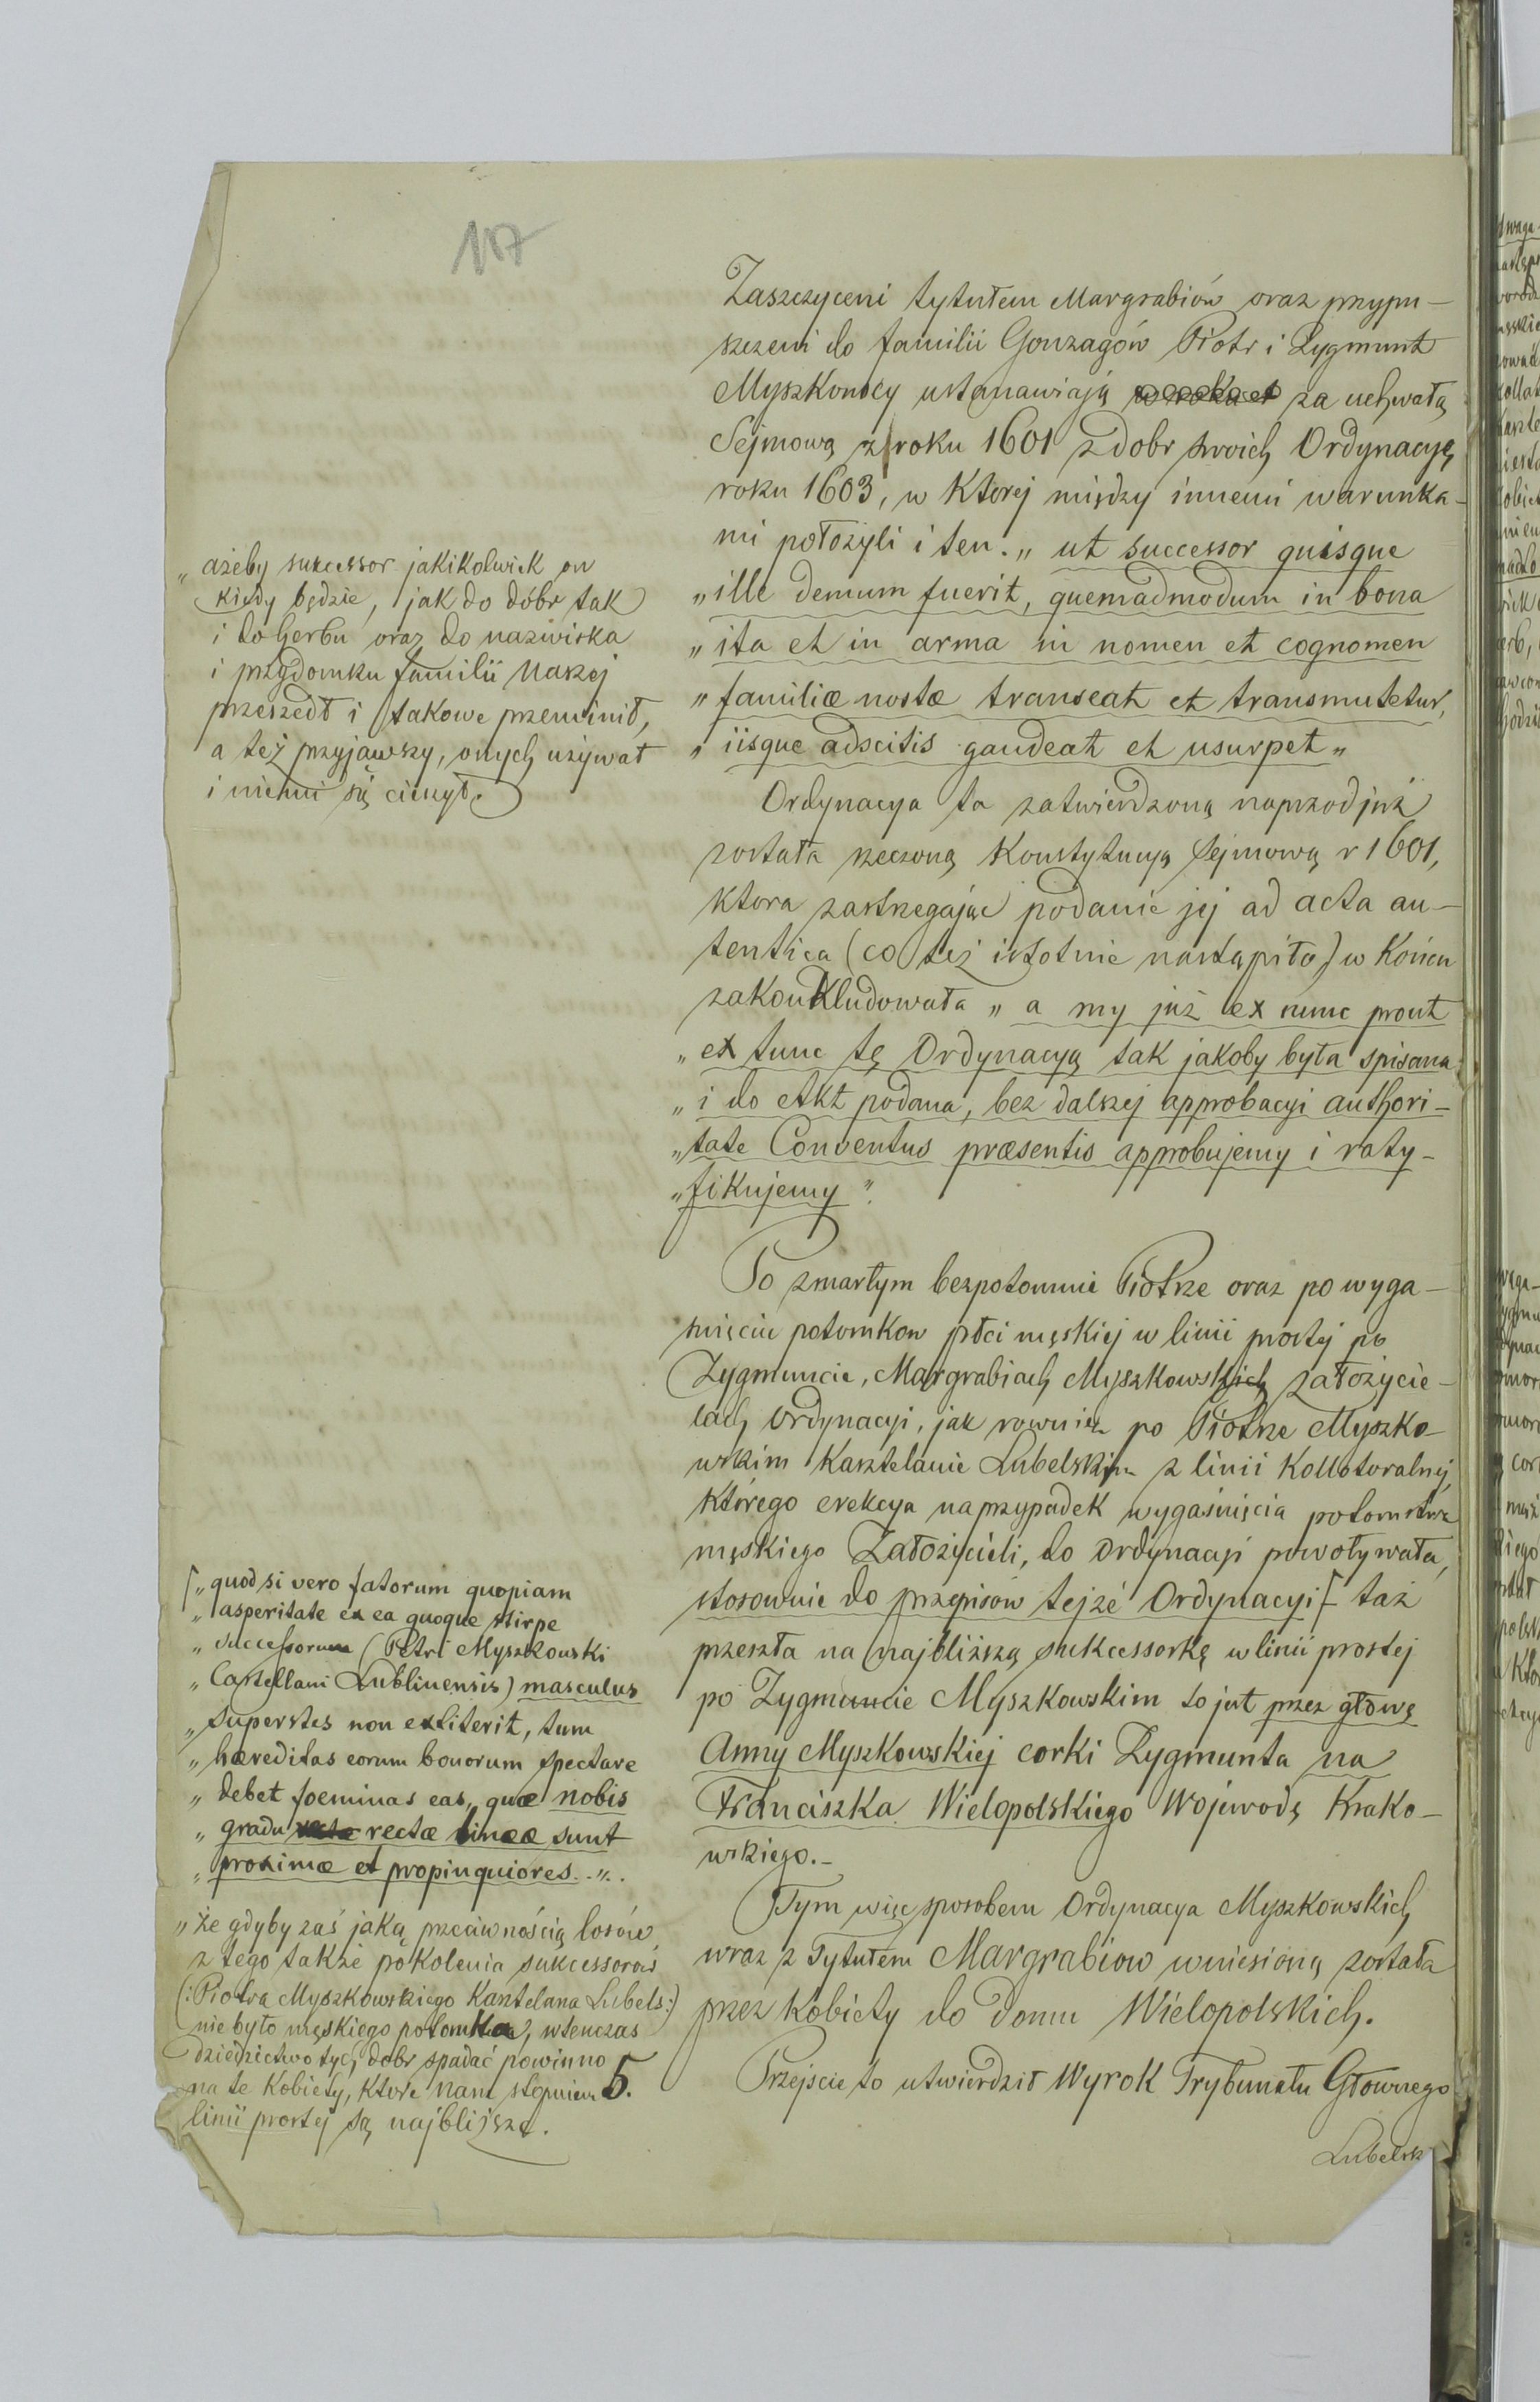 117
Zaszczyceni tytułem Margrabiów oraz przypu-
szczeni do familii Gonzagów Piotr i Zygmunt
Myszkowscy ustanawiają za uchwałą
Sejmową z roku 1601 z dobr swoich Ordynacyę
roku 1603, w Ktorej między innemi warunka-
mi położyli i ten. „ ut successor quisque
„ ille demum fuerit, quemadmodum in bona
„ ita et in arma in nomen et cognomen
„ familiæ nostæ transeat et transmutetur,
„ iisque adscitis gaudeat et usurpet „
Ordynacya ta zatwierdzoną naprzod już
została rzeczoną Konstytucyą Sejmową r 1601,
ktora zastrzegając podanie jej ad acta au-
tentica (co też istotnie nastąpiło) w Końcu
zakonkludowała „ a my już ex nunc prout
„ ex tunc tę Ordynacyą tak jakoby była spisana
„ i do Akt podana, bez dalszej approbacyi authori-
„ tate Conventus præsentis approbujemy i raty-
„ fikujemy ".
Po zmarłym bezpotomnie Piotrze oraz po wyga-
śnięciu potomkow płci męskiej w linii prostej po
Zygmuncie, Margrabiach Myszkowskich założycie-
lach Ordynacyi, jak rownież po Piotrze Myszko-
wskim Kasztelanie Lubelskim z linii Kollateralnej,
którego erekcya na przypadek wygaśnięcia potomstwa
męskiego Założycieli, do Ordynacyi powoływała,
stosownie do przepisów tejże Ordynacyi [ taż
przeszła na najbliższą sukcessorkę w linii prostej
po Zygmuncie Myszkowskim to jest przez głowę
Anny Myszkowskiej corki Zygmunta na
Franciszka Wielopolskiego Wojewodę Krako-
wskiego.-
Tym więc sposobem Ordynacya Myszkowskich
wraz z Tytułem Margrabiow wniesioną została
przez Kobiety do Domu Wielopolskich.
Przejscie to utwierdził Wyrok Trybunału Głownego
Lubelsk
„ ażeby sukcessor jakikolwiek on
kiedy będzie, jak do dóbr tak
i do herbu oraz do nazwiska
i przydomku familii naszej
przeszedł i takowe przemienił,
a też przyjąwszy, onych używał
i niemi się cieszył.
[ „ quod si vero fatorum quopiam
„ asperitate ex ea quoque stirpe
„ successorum (Petri Myszkowski
„ Castellani Lublinensis) masculus
„ superstes non extiterit, tum
„ hæreditas eorum bonorum spectare
„ debet foeminas eas, quæ nobis
„ gradu rectæ lineæ sunt
„ proximæ et propinquiores. „.
„ że gdyby zaś jaką przeciwnością losów
z tego także pokolenia sukcessorów
(: Piotra Myszkowskiego Kasztelana Lubels:)
nie było męskiego potomka, wtenczas
dziedzictwo tych dobr spadać powinno
na te Kobiety, ktore nam stopniem
linii prostej są najbliższe.
5.